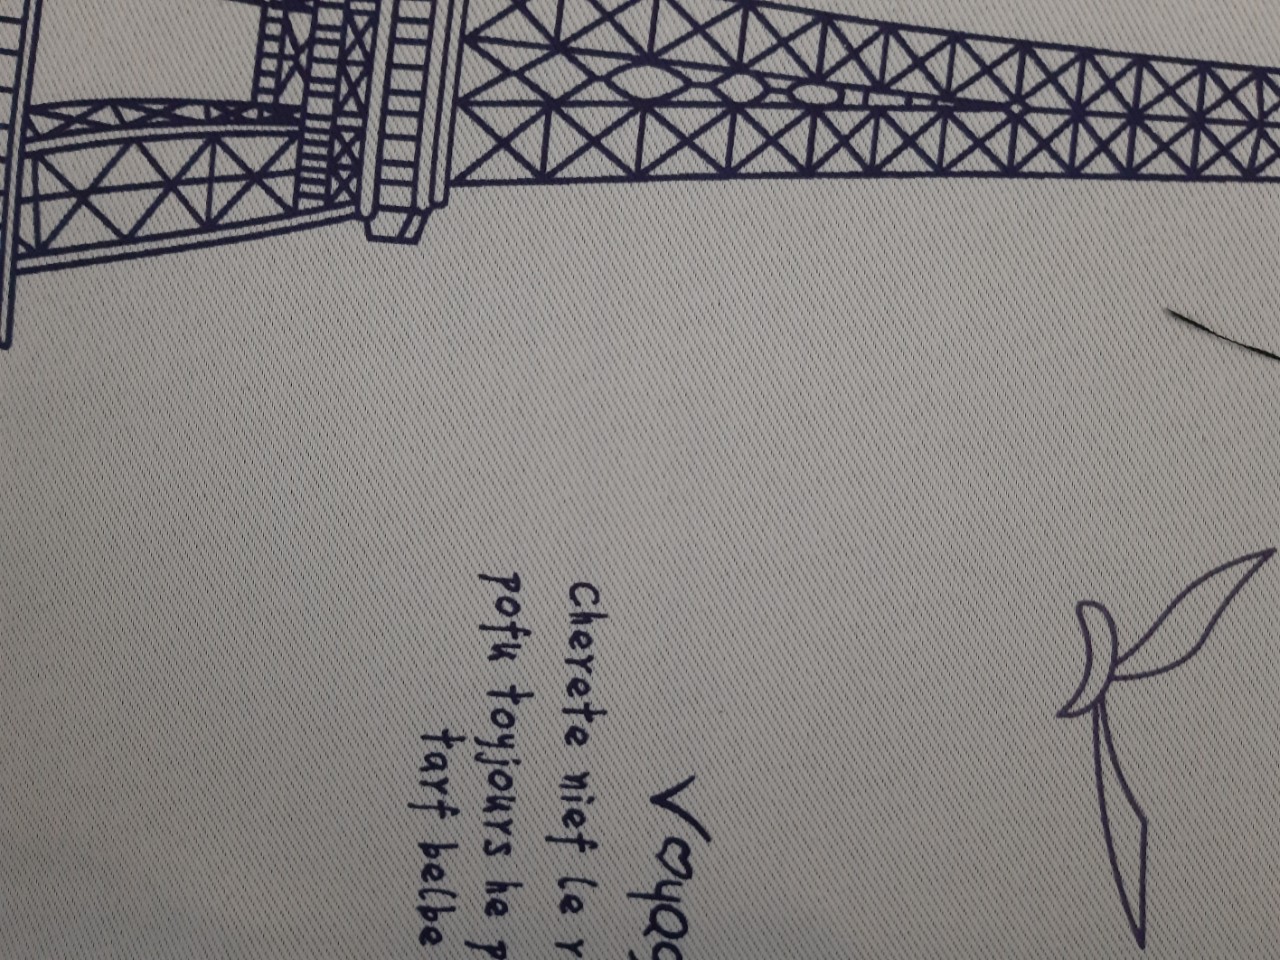 Voyag
Cherete nief le r
pofu toyjours he p
tarf belbe